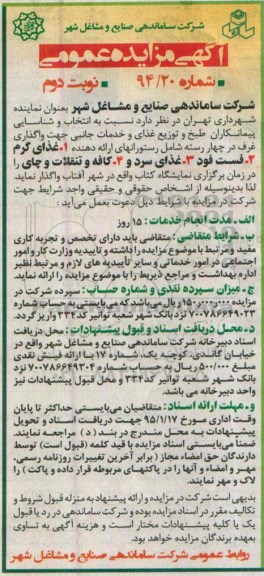 شرکت ساماندهی صنایع و مشاغل شهر
آگهی مزایده عمومی
شماره ۹۴/۲۰ نوبت دوم
شرکت ساماندهی صنایع و مشاغل شهر بعنوان نماینده
شهرداری تهران در نظر دارد نسبت به انتخاب و شناسایی
پیمانکاران طبخ و توزیع غذای و خدمات جانبی جهت واگذاری
غرف در چهار رسته شامل رستورانهای ارائه دهنده ۱.غذای گرم
۲.فست فود ۳.غذای سرد و ۴.کافه و تنقلات و چای را
در زمان برگزاری نمایشگاه کتاب واقع در شهر آفتاب واگذار نماید.
لذا بدینوسیله از اشخاص حقوقی و حقیقی واجد شرایط جهت
شرکت در مزایده با شرایط ذیل دعوت بعمل می‌آید :
الف ـ مدت انجام خدمات : ۱۵ روز
ب ـ شرایط متقاضی: متقاضی باید دارای تخصص و تجربه کاری
مفید و مرتبط با موضوع مزایده را داشته و تاییدیه وزارت کار و امور
اجتماعی در امور خدماتی و سایر تأییدیه های لازم و مرتبط نظیر
اداره بهداشت و مراجع ذیربط را با موضوع مزایده را ارائه نمایند.
ج ـ میزان سپرده نقدی و شماره حساب : سپرده شرکت در
مزایده ۱۵۰٬۰۰۰٬۰۰۰ ریال می‌باشد که می‌بایستی به حساب شماره
۷۰۰۷۸۶۶۴۹۰۲۳ نزد بانک شهر شعبه توانیر کد ۳۳۴ واریز گردد.
د ـ محل دریافت اسناد و قبول پیشنهادات : محل دریافت
اسناد دبیرخانه شرکت ساماندهی صنایع و مشاغل شهر واقع در
خیابان گاندی، کوچه یک، شماره ۱۷ با ارائه فیش نقدی
مبلغ ۵۰۰/۰۰۰ ریال به حساب شماره ۷۰۰۷۸۶۶۴۹۳۰۴ نزد
بانک شهر شعبه توانیر کد ۳۳۴ و محل قبول پیشنهادات نیز
واحد دبیرخانه می باشد.
و ـ مهلت ارائه اسناد : متقاضیان می‌بایستی حداکثر تا پایان
وقت اداری مورخ ۹۵/۱/۱۷ جهت دریافت اسناد و تحویل
پیشنهادات به محل مندرج در بند ( د ) مراجعه نمایند.
ضمنا می‌بایستی اسناد مزایده با قید کلمه (قبول است) توسط
دارندگان حق امضاء مجاز ( برابر آخرین تغییرات روزنامه رسمی،
مهر و امضاء و آنها را در پاکتهای مربوطه قرار داده و پاکت ) را
لاک و مهر نمایند.
بدیهی است شرکت در مزایده و ارائه پیشنهاد به منزله قبول شروط و
تکالیف مقرر در اسناد مزایده بوده و شرکت ساماندهی در رد یا قبول
یک یا کلیه پیشنهادات مختار است و هزینه آگهی به تساوی
بعهده برندگان مزایده خواهد بود.
روابط عمومی شرکت ساماندهی صنایع و مشاغل شهر